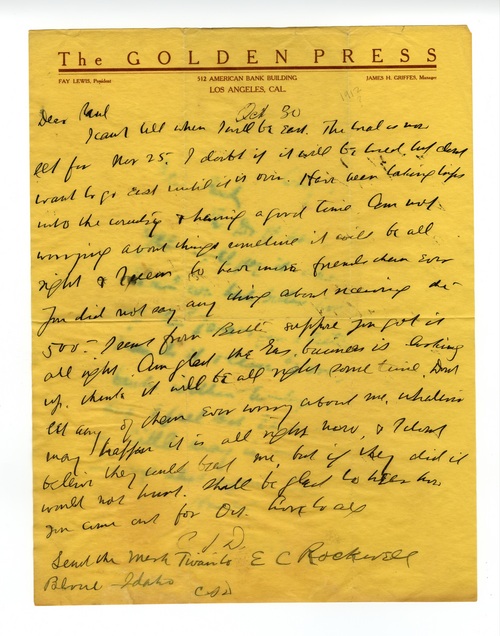 The GOLDEN PRESS
FAY LEWIS, President
512 AMERICAN BANK BUILDING
JAMES H. GRIFFES, Manager
LOS ANGELES, CAL.
Oct 30
1912
Dear Paul
I can't tell when I will be East. The trial is now
set for Nov 25. I doubt if it will be tried, but don't
want to go East until it is over. Have been taking trips
into the country & having a good time Am not
worrying about things sometime it will be all
right & I seem to have more friends than ever
You did not say any thing about receiving the
500- I sent from Butte suppose you got it
all right. Am glad the Gas business is looking
up. think it will be all right some time. Dont
let any of them ever worry about me, whatever
may happen it is all right now, & I dont
believe they could beat me but if they did it
would not hurt. Shall be glad to hear how
you came out for Oct. Love to all
C.S.D.
Send the Mark Twain to E C Rockwell
Idaho
CSD